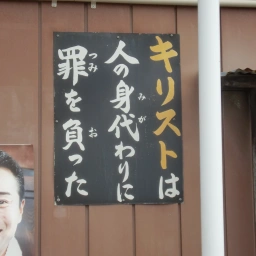 キリストは
人の身代わりに
罪を負った